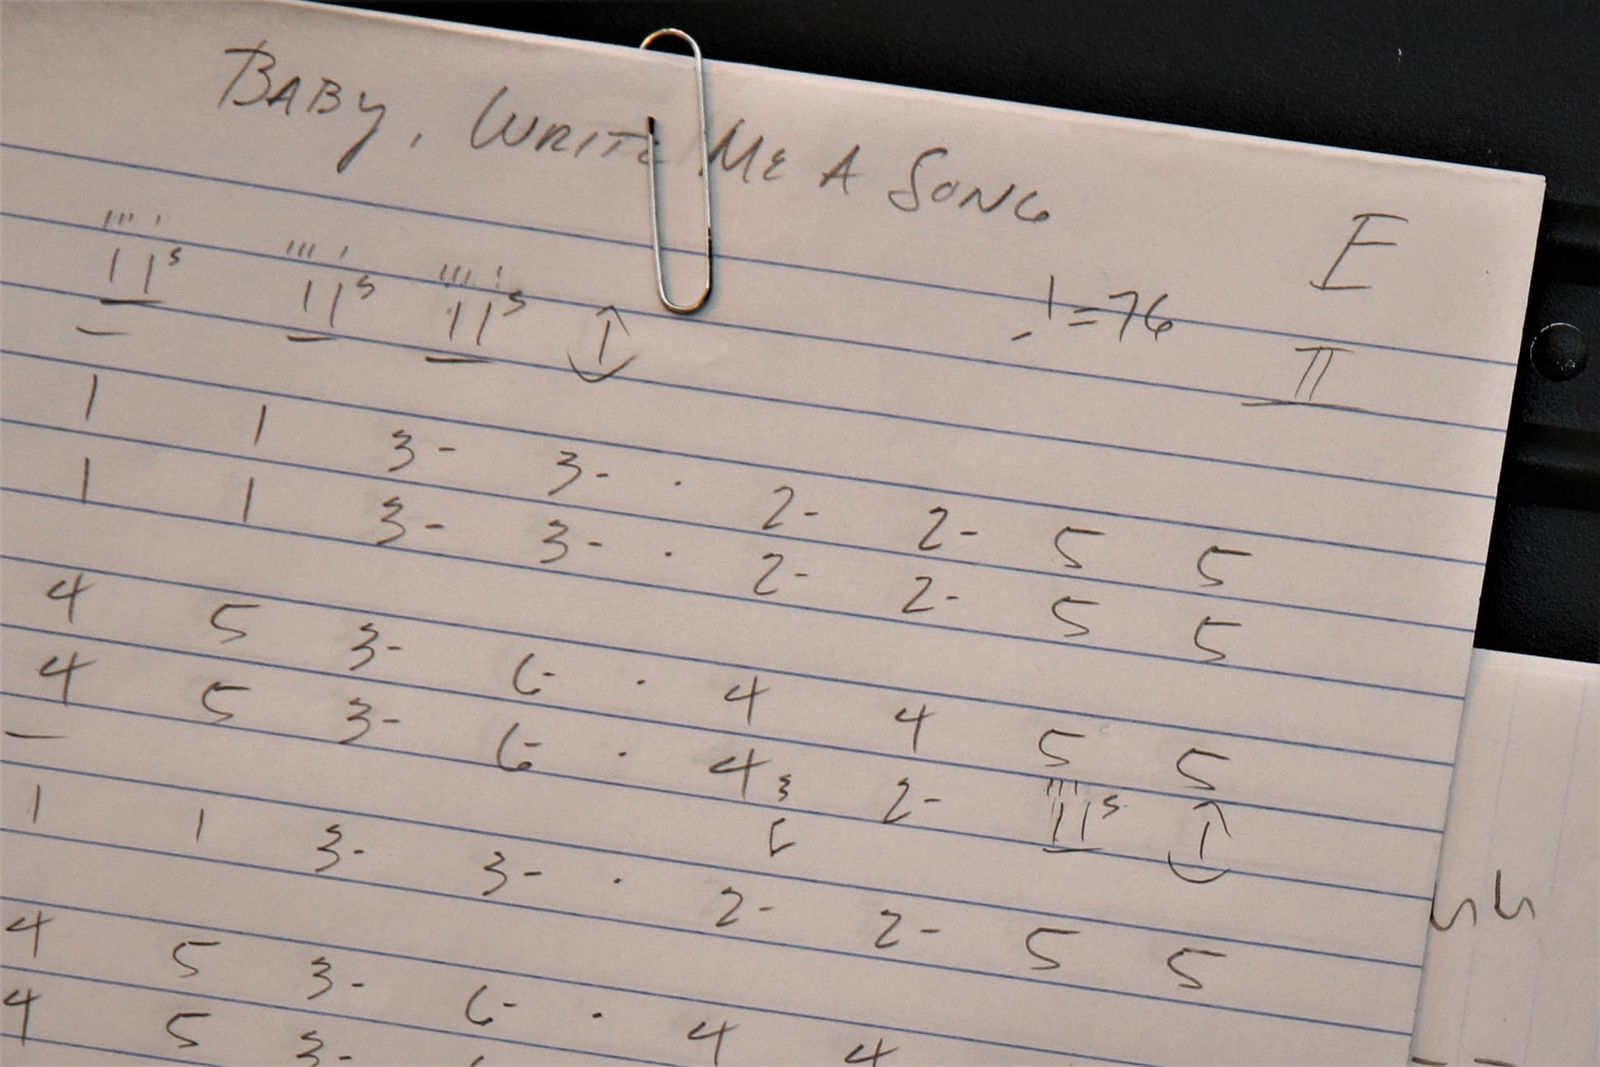 BABY, WRITE ME A SONG
E
♩=76
II
11⁵ 11⁵ 11⁵ 1
1 1 3- 3- . 2- 2- 5 5
1 1 3- 3- . 2- 2- 5 5
4 5 3- 6- . 4 4 5 5
4 5 3- 6- . 4 3 5 2- 11⁵ 1
1 1 3- 3- . 2- 2- 5 5
4 5 3- 6- . 4 4
4 5 3-